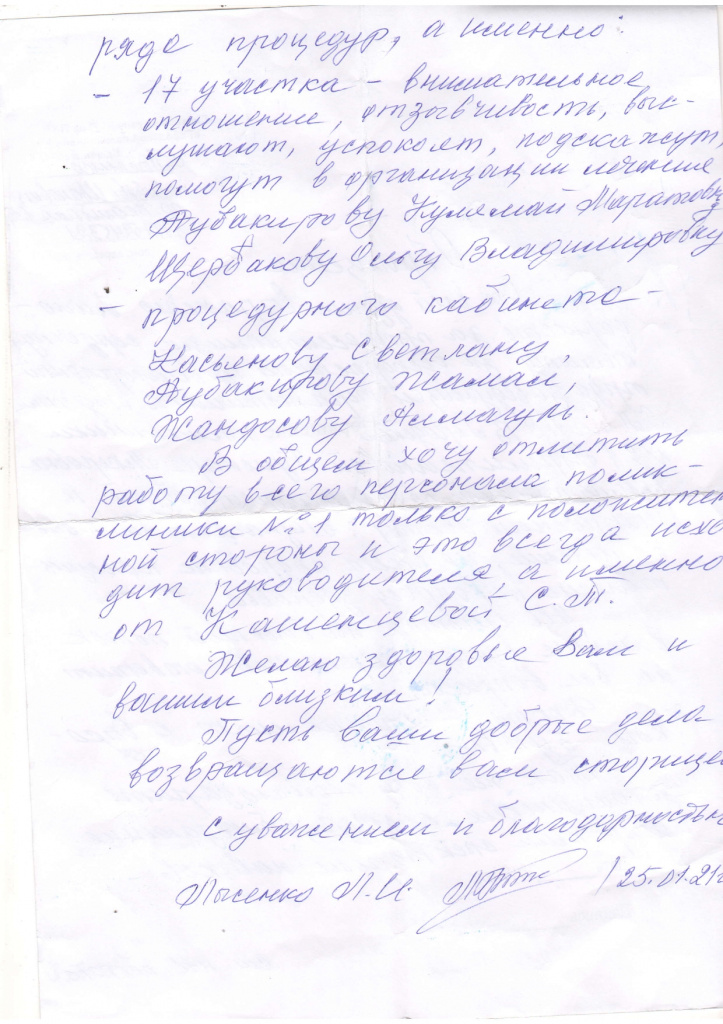 ряда процедур, а именно:
- 17 участка - внимательное
отношение, отзывчивость, выс-
лушают, успокоят, подскажут,
помогут в организации лечения
Аубакирову Кулямай Маратовну
Щербакову Ольгу Владимировну
- процедурного кабинета -
Касьянову Светлану,
Аубакирову Жамал,
Жандосову Алмагуль.
В общем хочу отметить
работу всего персонала полик-
линики №1 только с положител
ной стороны и это всегда исхо
дит руководителя, а именно
от Кашенцевой С.Т.
Желаю здоровья Вам и
вашим близким!
Пусть ваши добрые дела
возвращаются вам сторице
с уважением и благодарностью
Лысенко Л.И. / 25.01.21г